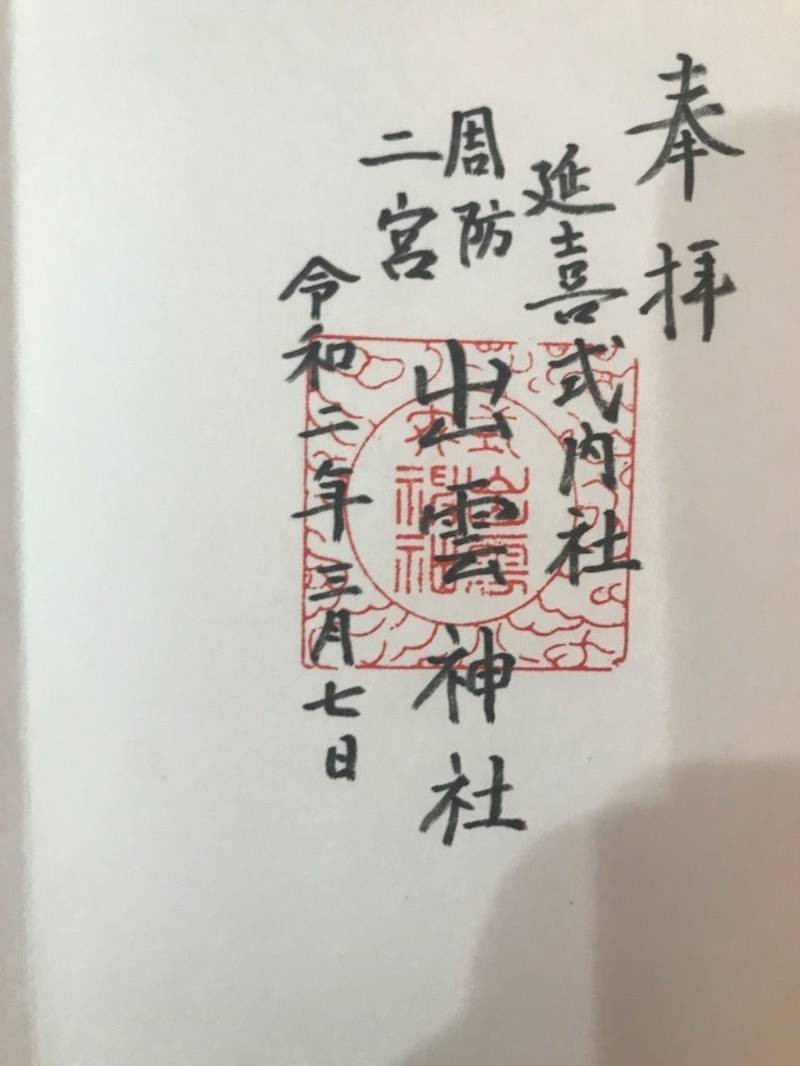 奉拝
延喜式内社
周防
二宮
出雲神社
令和二年三月七日